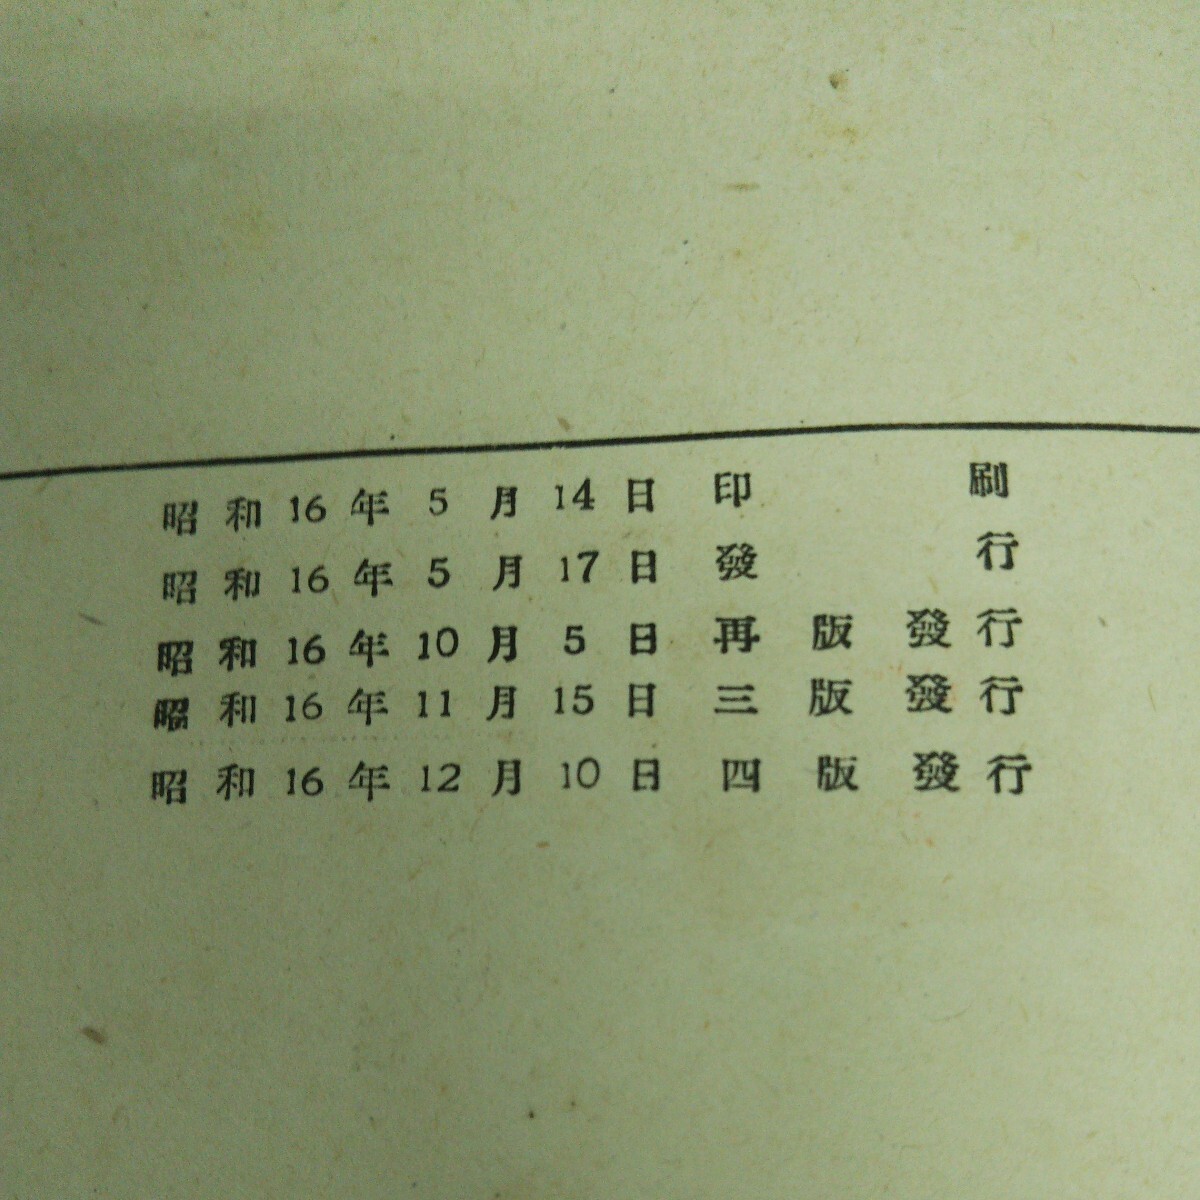 昭和16年5月14日印刷
昭和16年5月17日發行
昭和16年10月5日再版發行
昭和16年11月15日三版發行
昭和16年12月10日四版發行